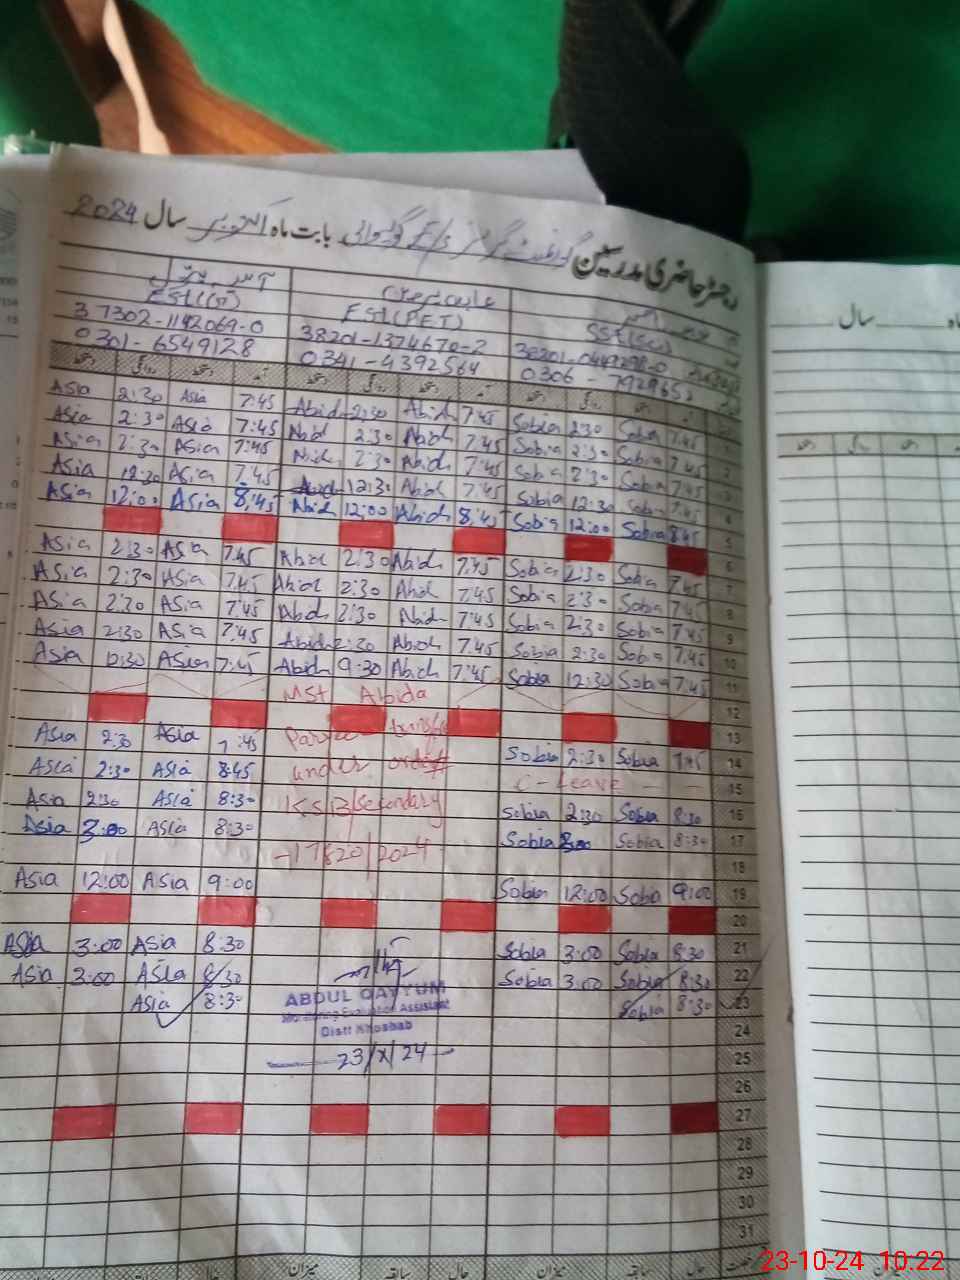 دفتر حاضری مدرسین گورنمنٹ گرلز بابت ماہ اکتوبر سال 2024
EST(PET)
37302-1142069-0
38201-1374670-2
0301-6549128
0341-4392564
Asia 2:30 Asia 7:45 Abida 2:30 Abida 7:45 Sobia 2:30 Sobia 7:45 1
Asia 2:30 Asia 7:45 Abid 2:30 Abida 7:45 Sobia 2:30 Sobia 7:45 2
Asia 2:30 Asia 7:45 Abid 2:30 Abida 7:45 Sobia 2:30 Sobia 7:45 3
Asia 12:30 Asia 7:45 Abid 12:30 Abid 7:45 Sobia 12:30 Sobia 7:45 4
Asia 12:00 Asia 8:45 Abid 12:00 Abida 8:45 Sobia 12:00 Sobia 8:45 5
6
Asia 2:30 Asia 7:45 Abid 2:30 Abida 7:45 Sobia 2:30 Sobia 7:45 7
Asia 2:30 Asia 7:45 Abid 2:30 Abid 7:45 Sobia 2:30 Sobia 7:45 8
Asia 2:30 Asia 7:45 Abida 2:30 Abida 7:45 Sobia 2:30 Sobia 7:45 9
Asia 2:30 Asia 7:45 Abida 2:30 Abida 7:45 Sobia 2:30 Sobia 7:45 10
Asia Asia 7:45 Abida 9:30 Abid 7:45 Sobia 12:30 Sobia 7:45 11
MSt Abida 12
13
Asia 2:30 Asia 7:45 transfer Sobia 2:30 Sobia 7:45 14
Asia 2:30 Asia 8:45 under order# C-Leave 15
Asia 2:30 Asia 8:30 Secondary Sobia 2:30 Sobia 8:30 16
Asia 3:00 Asia 8:30 Sobia 3:00 Sobia 8:30 17
-17820/2024 18
Asia 12:00 Asia 9:00 Sobia 12:00 Sobia 9:00 19
20
Asia 3:00 Asia 8:30 Sobia 3:00 Sobia 8:30 21
Asia 3:00 Asia 8:30 Sobia 3:00 Sobia 8:30 22
Asia 8:30 Sobia 8:30 23
ABDUL QAYYUM
Monitoring Evaluation Assistant
Distt Khushab
23/X/24
24
25
26
27
28
29
30
31
میزان حال سابقہ میزان حال سابقہ
سال
23-10-24 10:22